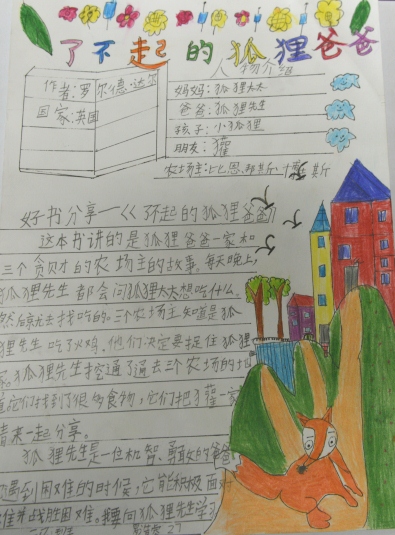 了不起的狐狸爸爸
作者:罗尔德·达尔
国家:英国
人物介绍
妈妈:狐狸太太
爸爸:狐狸先生
孩子:小狐狸
朋友:獾
农场主:比恩.邦斯.博吉斯
好书分享——《了不起的狐狸爸爸》
这本书讲的是狐狸爸爸一家和
三个贪财的农场主的故事。每天晚上,
狐狸先生都会问狐狸太太想吃什么,
然后就去找吃的。三个农场主知道是狐
狸先生吃了火鸡,他们决定要捉住狐狸
家。狐狸先生挖通了通去三个农场的地
道,它们找到了很多食物,它们把獾一家
请来一起分享。
狐狸先生是一位机智、勇敢的爸爸
遇到困难的时候,它能积极面对
难并战胜困难。我要向狐狸先生学习